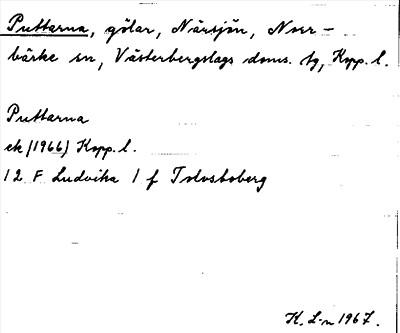 Puttarna, gölar, Närsjön, Norr-
bärke sn, Västerbergslags doms. tg, Kopp. l.
Puttarna
ek (1966) Kopp. l.
12 F Ludvika 1 f Tolvsboberg
K. L-n 1967.